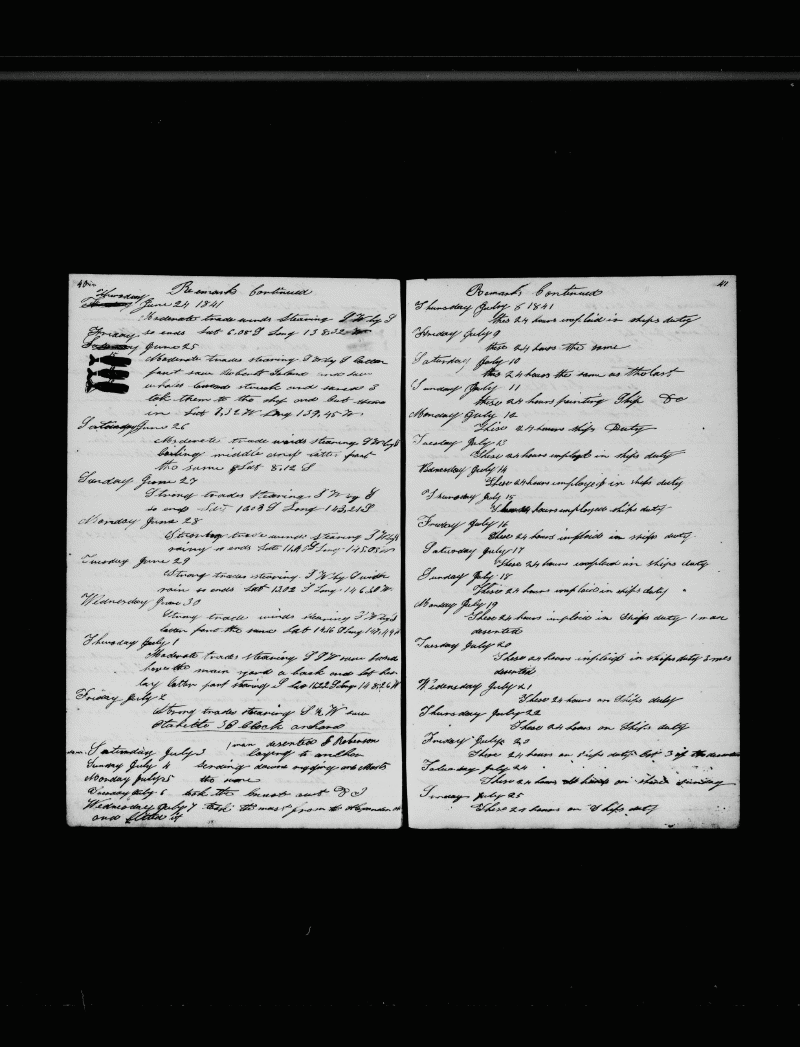 40
Remarks Continued
Thursday June 24 1841
Moderate trade winds Stearing S W by S
Friday so ends Lat 6.08 S Long 138.32 W
June 25
Moderate trades stearing S W by S latter
part saw Island and saw
whales struck and saved 3
tok them to the ship and Cut them
in Lat 7.32 W Long 139.45 W
Saturday June 26
Moderate trade winds stearing S W by S
boiling middle and latter part
the same Lat 8.12 S
Sunday June 27
Strong trades Stearing S W by S
so ends Lat 10.03 S Long 143.21
Monday June 28
Strong trade winds stearing S W by S
rainy so ends Lat 11.45 S Long 145.05 W
Tuesday June 29
Strong trades stearing S W by S with
rain so ends Lat 13.02 S Long 146.28 W
Wednesday June 30
Strong trade winds stearing S W by S
latter part the same Lat 14.16 S Long 147.49 W
Thursday July 1
Moderate trades stearing S S W
hove the main yard a back and lot her
lay latter part staring S Lat 15.22 S Long 148.26 W
Friday July 2
Strong trades stearing S & W saw
Otaheitte 3 O Clock anchord
Saturday July 3 1 man deserted E Robinson
laying to anchor
Sunday July 4 sending down riging and Masts
Monday July 5 the same
Tuesday July 6 tok the mast out &C
Wednesday July 7 tok the mast from the
and fitted it
41
Remarks Continued
Thursday July 8 1841
this 24 hours imploid in ships duty
Friday July 9
these 24 hours the same
Saturday July 10
this 24 hours the same as the last
Sunday July 11
these 24 hours painting Ship &C
Monday July 12
These 24 hours ships Duty
Tuesday July 13
These 24 hours employd in ships duty
Wednesday July 14
These 24 hours employed in ships duty
Thursday July 15
hours employed ships duty
Friday July 16
These 24 hours imploid in ships duty
Saturday July 17
These 24 hours imploid in ships duty
Sunday July 18
These 24 hours imploid in ships duty
Monday July 19
These 24 hours imploid in Ships duty 1 man
deserted
Tuesday July 20
These 24 hours imploid in ships duty 3 men
deserted
Wednesday July 21
These 24 hours on Ships duty
Thursday July 22
These 24 hours on Ships duty
Friday July 23
These 24 hours on ships duty Got 3 of the
Saturday July 24
These 24 hours on ships
Sunday July 25
These 24 hours on Ships duty